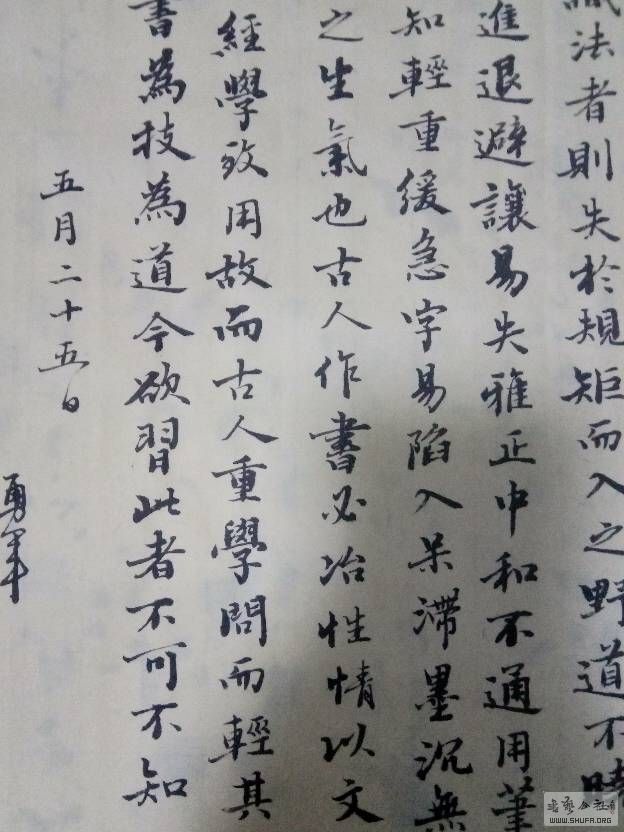 法者則失於規矩而入之野道不曉
進退避讓易失雅正中和不通用筆
知輕重緩急字易陷入呆滯墨沉無
之生氣也古人作書必冶性情以文
經學致用故而古人重學問而輕其
書為技為道今欲習此者不可不知
五月二十五日
勇軍
WWW.SHUFA.ORG